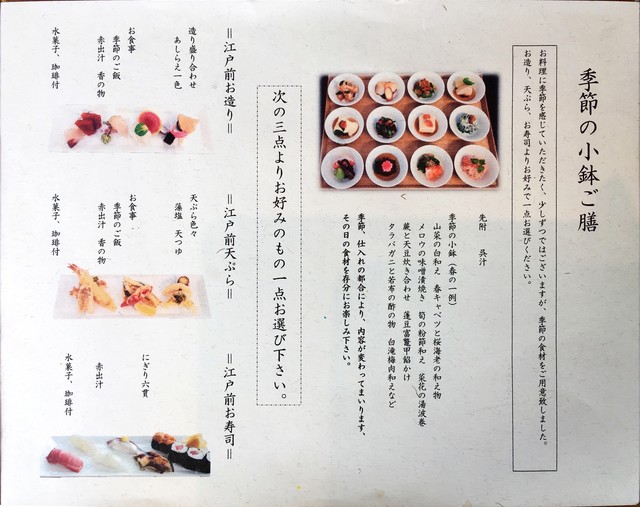 季節の小鉢ご膳
お料理に季節を感じていただきたく、少しずつではございますが、季節の食材をご用意致しました。
お造り、天ぷら、お寿司よりお好みで一点お選びください。
先附　呉汁
季節の小鉢（春の一例）
山菜の白和え　春キャベツと桜海老の和え物
メロウの味噌漬焼き　筍の粉節和え　菜花の湯波巻
蕨と天豆炊き合わせ　蓬豆富鼈甲餡かけ
タラバガニと若布の酢の物　白滝梅肉和えなど
季節、仕入れの都合により、内容が変わってまいります。
その日の食材を存分にお楽しみ下さい。
次の三点よりお好みのもの一点お選び下さい。
＝江戸前お造り＝
造り盛り合わせ
あしらえ一色
お食事
季節のご飯
赤出汁　香の物
水菓子、珈琲付
＝江戸前天ぷら＝
天ぷら色々
藻塩　天つゆ
お食事
季節のご飯
赤出汁　香の物
水菓子、珈琲付
＝江戸前お寿司＝
にぎり六貫
赤出汁
水菓子、珈琲付